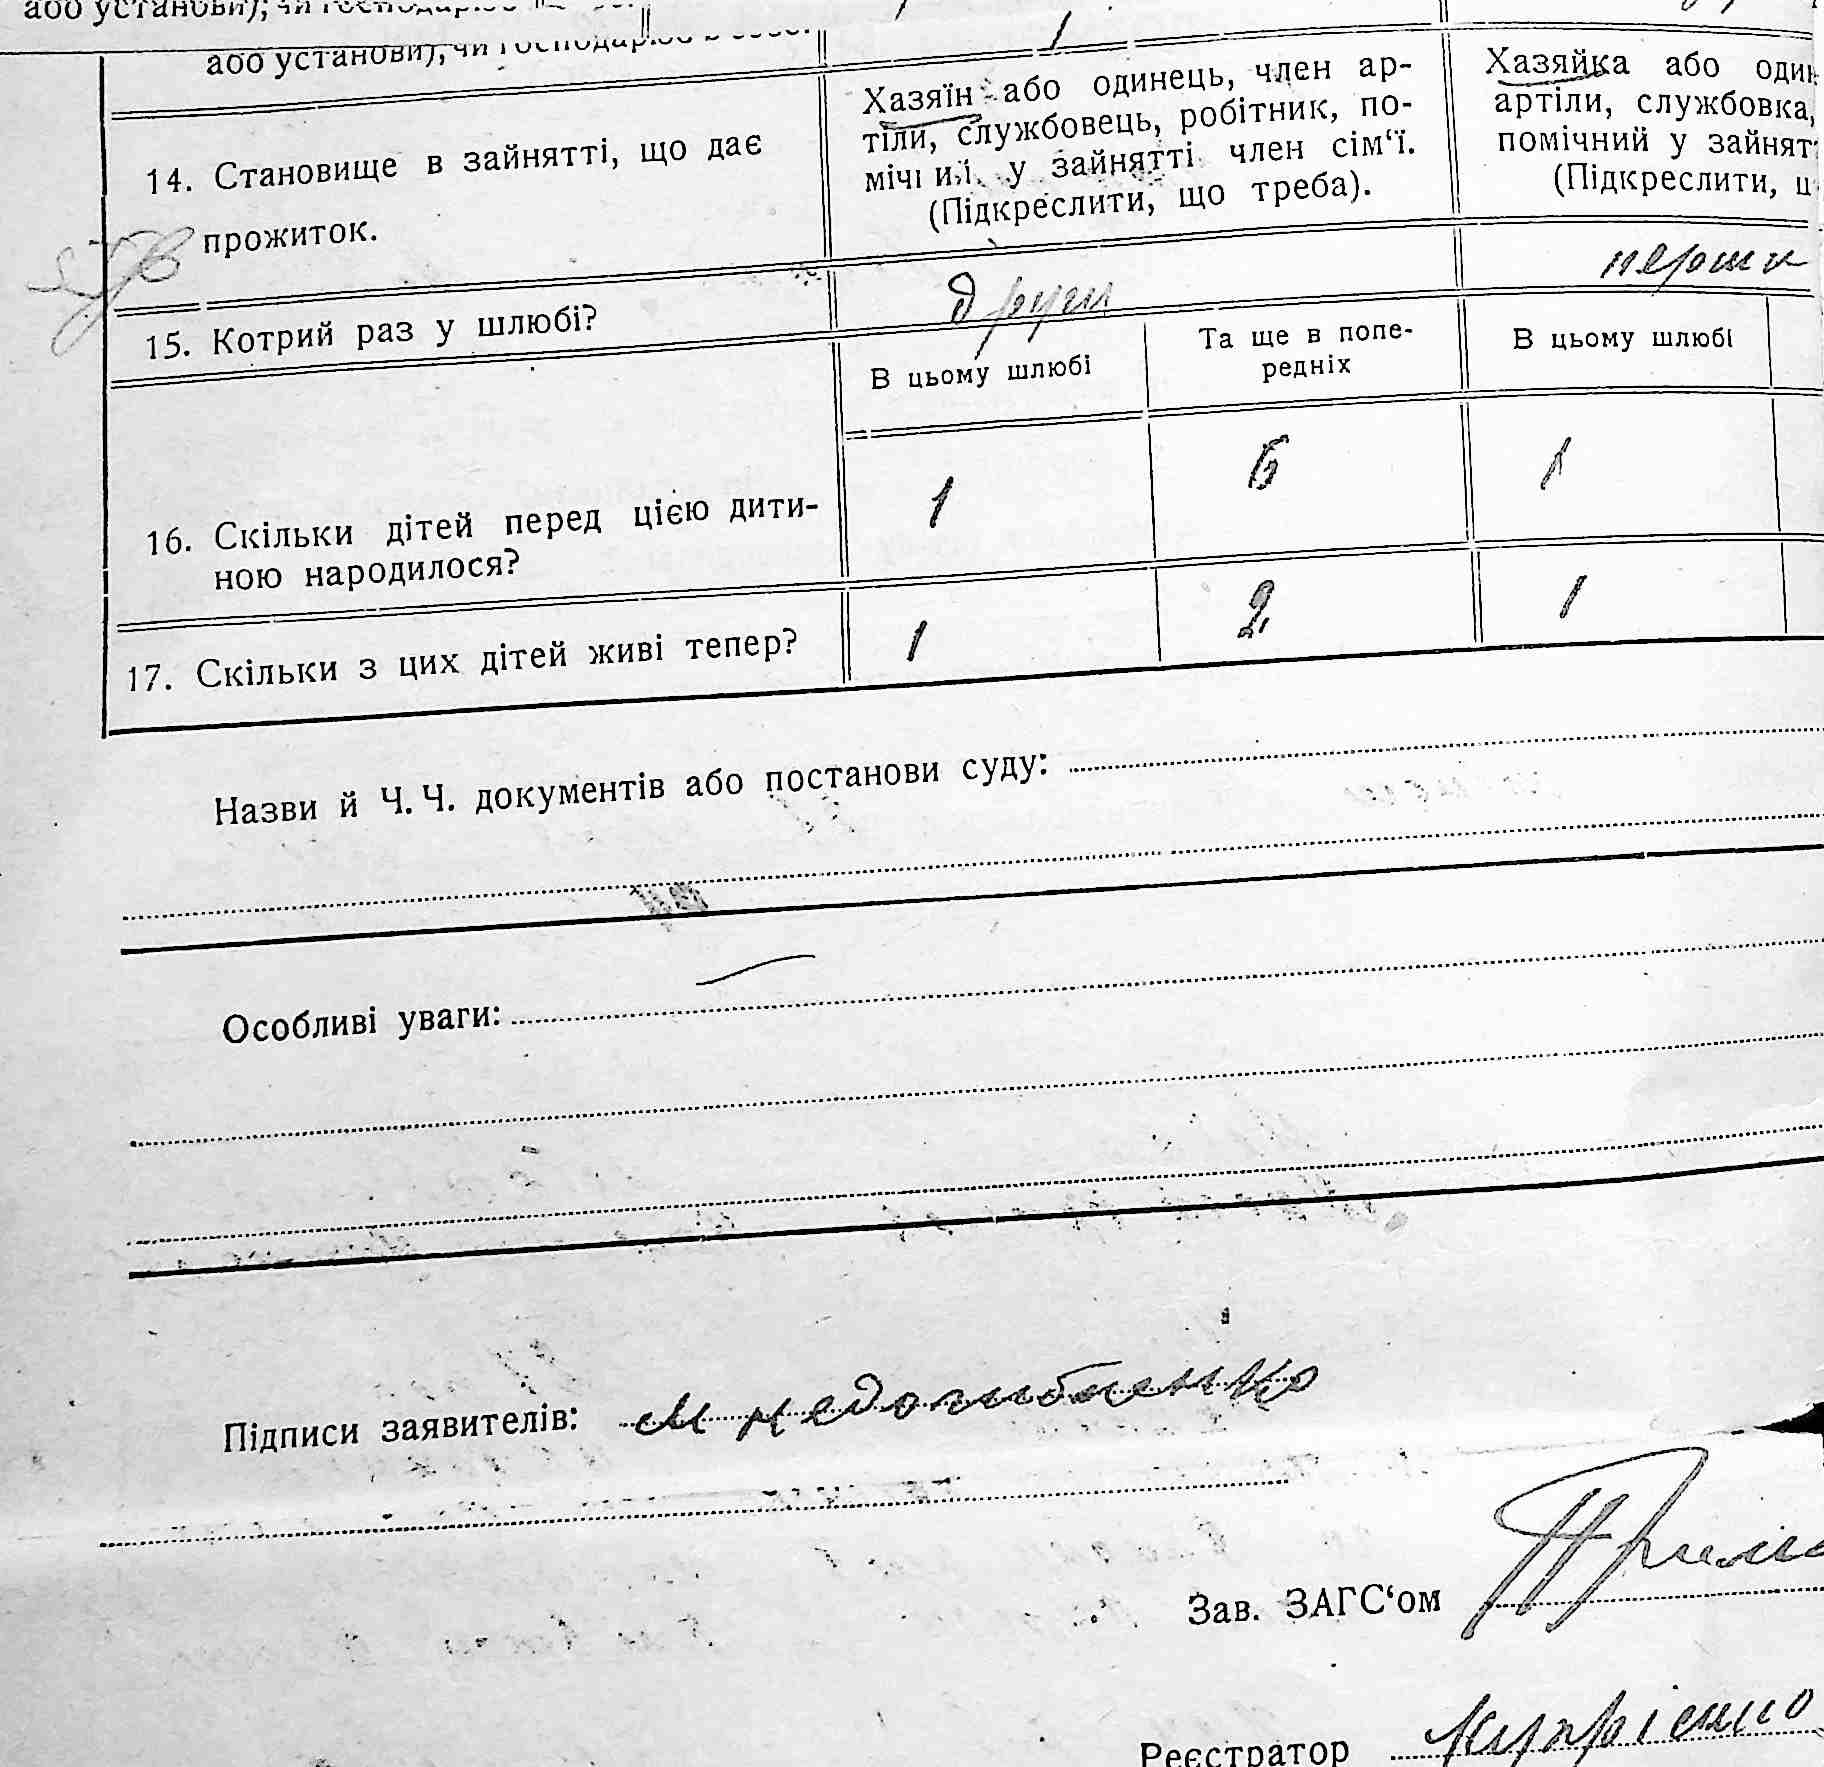 або установи), чи господарює
або установи), чи господарює в
14. Становище в зайнятті, що дає
прожиток.
Хазяїн або одинець, член ар-
тіли, службовець, робітник, по-
мічний у зайнятті член сім‘ї.
(Підкреслити, що треба).
Хазяйка або
артіли, службовка,
помічний у
(Підкреслити,
15. Котрий раз у шлюбі?
други
перши
В цьому шлюбі
Та ще в попе-
редніх
В цьому шлюбі
16. Скільки дітей перед цією дити-
ною народилося?
1
6
1
17. Скільки з цих дітей живі тепер?
1
2
1
Назви й Ч. Ч. документів або постанови суду:
Особливі уваги:
Підписи заявителів: М Недогибченко
Зав. ЗАГС‘ом
Реєстратор